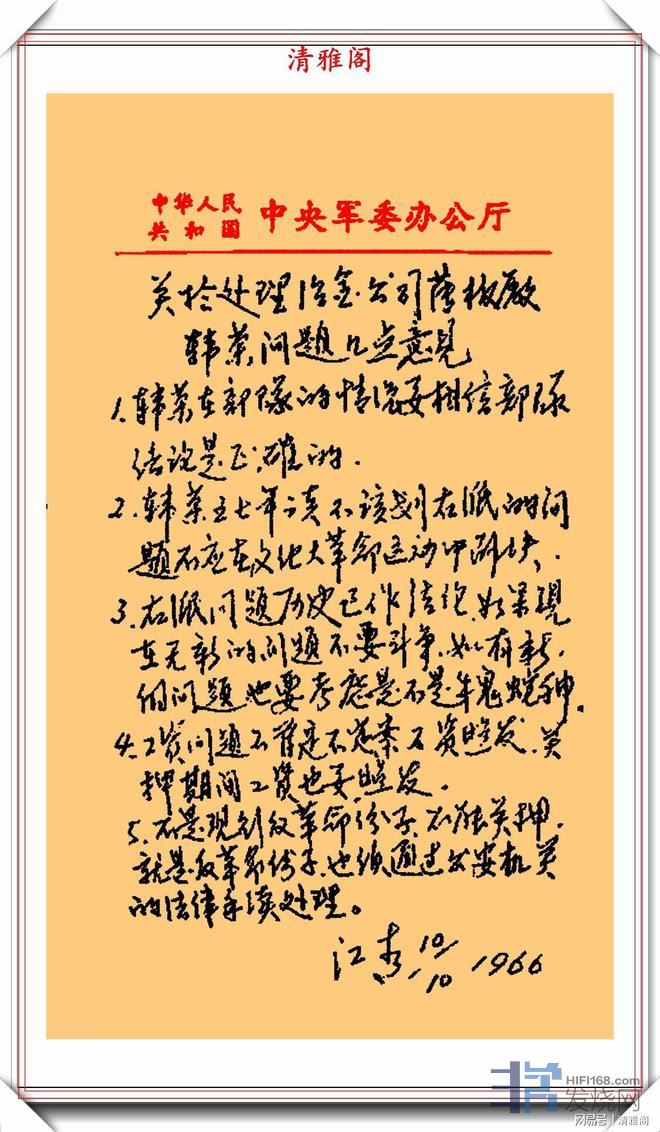 清雅阁
中华人民
共和国 中央军委办公厅
关於处理冶金公司薄板厰
韩荣问题几点意見
1.韩荣在部隊的情况要相信部隊
结论是正确的.
2.韩荣五七年该不该划右派的问
题不应在文化大革命运动中解决.
3.右派问题历史已作结论.如果現
在无新的问题不要斗争.如有新
的问题也要考虑是不是牛鬼蛇神.
4.工资问题不管定不定案工资照发.关
押期间工资也要照发.
5.不是现行反革命份子.不能关押.
就是反革命份子.也须通过公安机关
的法律手续处理。
江青 10/10 1966
HIFI168.com
发烧网
网易号 清雅阁